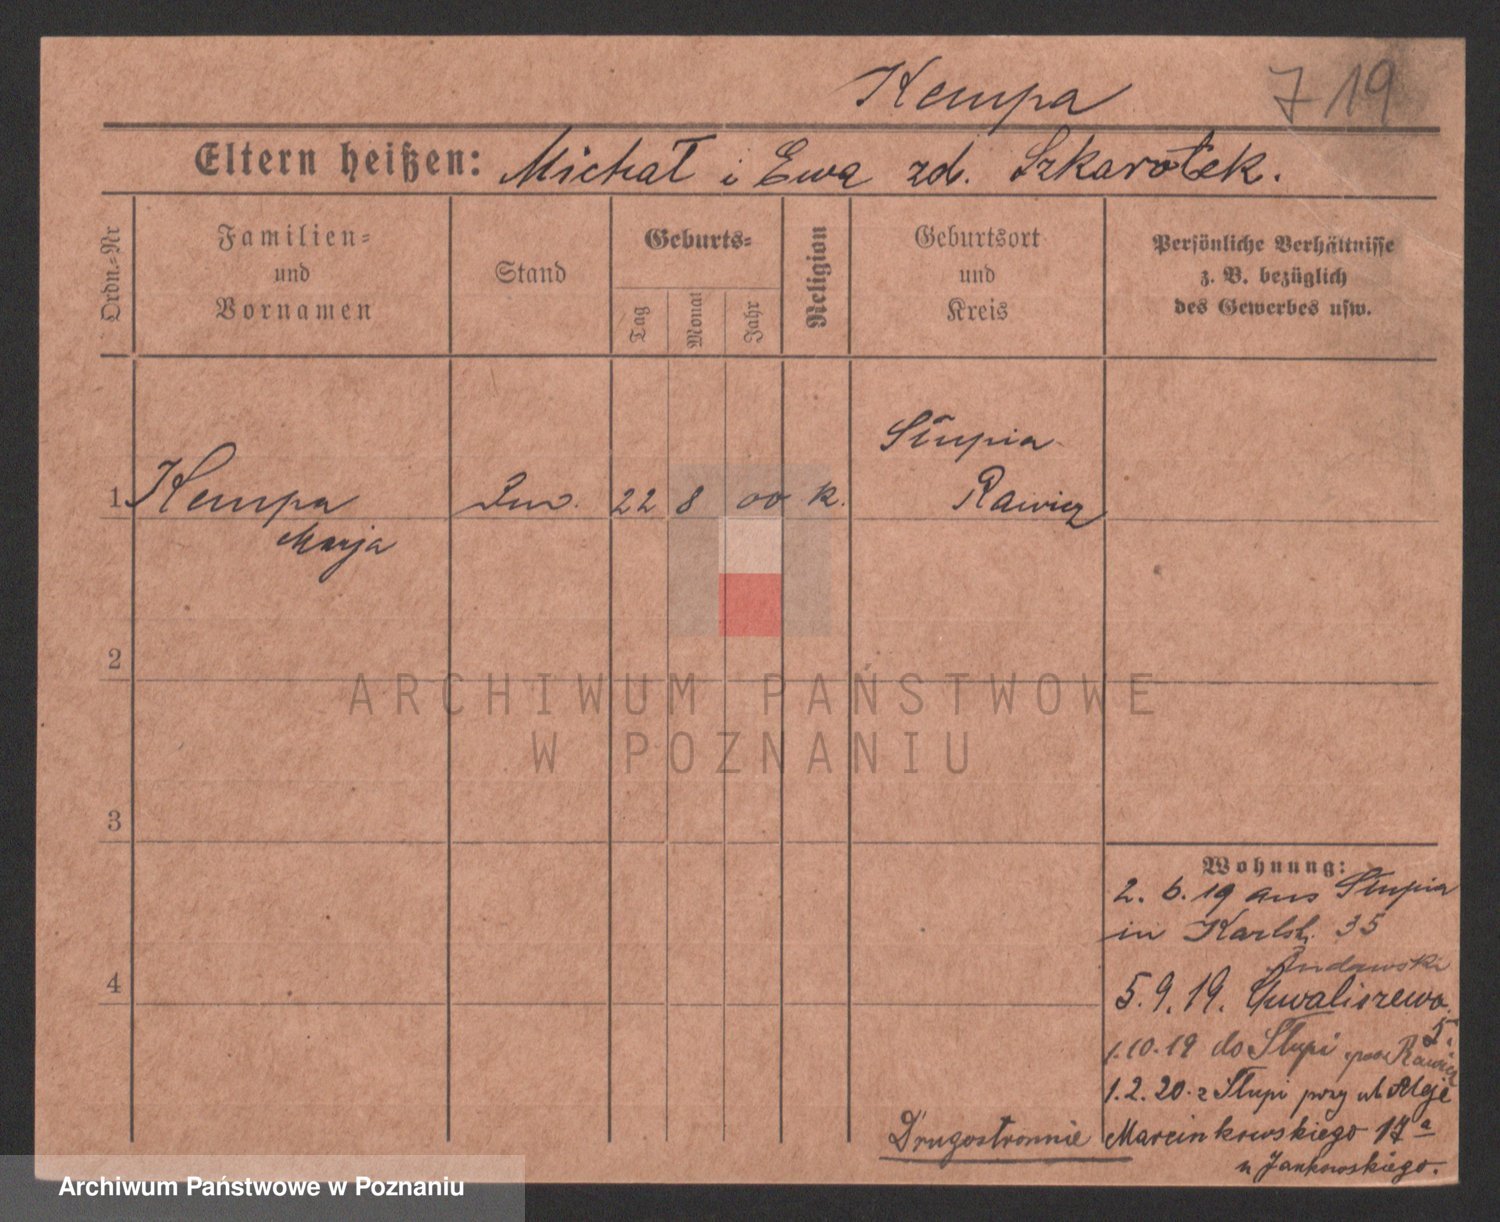 Kempa
719
Eltern heißen: Michał i Ewa zd. Szkarołek.
Ordn.-Nr
Familien-
und
Vornamen
Stand
Geburts-
Tag
Monat
Jahr
Religion
Geburtsort
und
Kreis
Persönliche Verhältnisse
z. B. bezüglich
des Gewerbes usw.
1 Kempa 22 8 00 k. Słupia
Rawicz
Marja
2
3
4
Wohnung:
2. 6. 19 aus Słupia
in Karlstr. 35
5. 9. 19. Chwaliszewo
5.
1.10.19 do Słupi Rawicz
1.2.20 z Słupi przy ul. Aleje
Marcinkowskiego 17a
u Jankowskiego.
Drugostronnie
ARCHIWUM PAŃSTWOWE
W POZNANIU
Archiwum Państwowe w Poznaniu